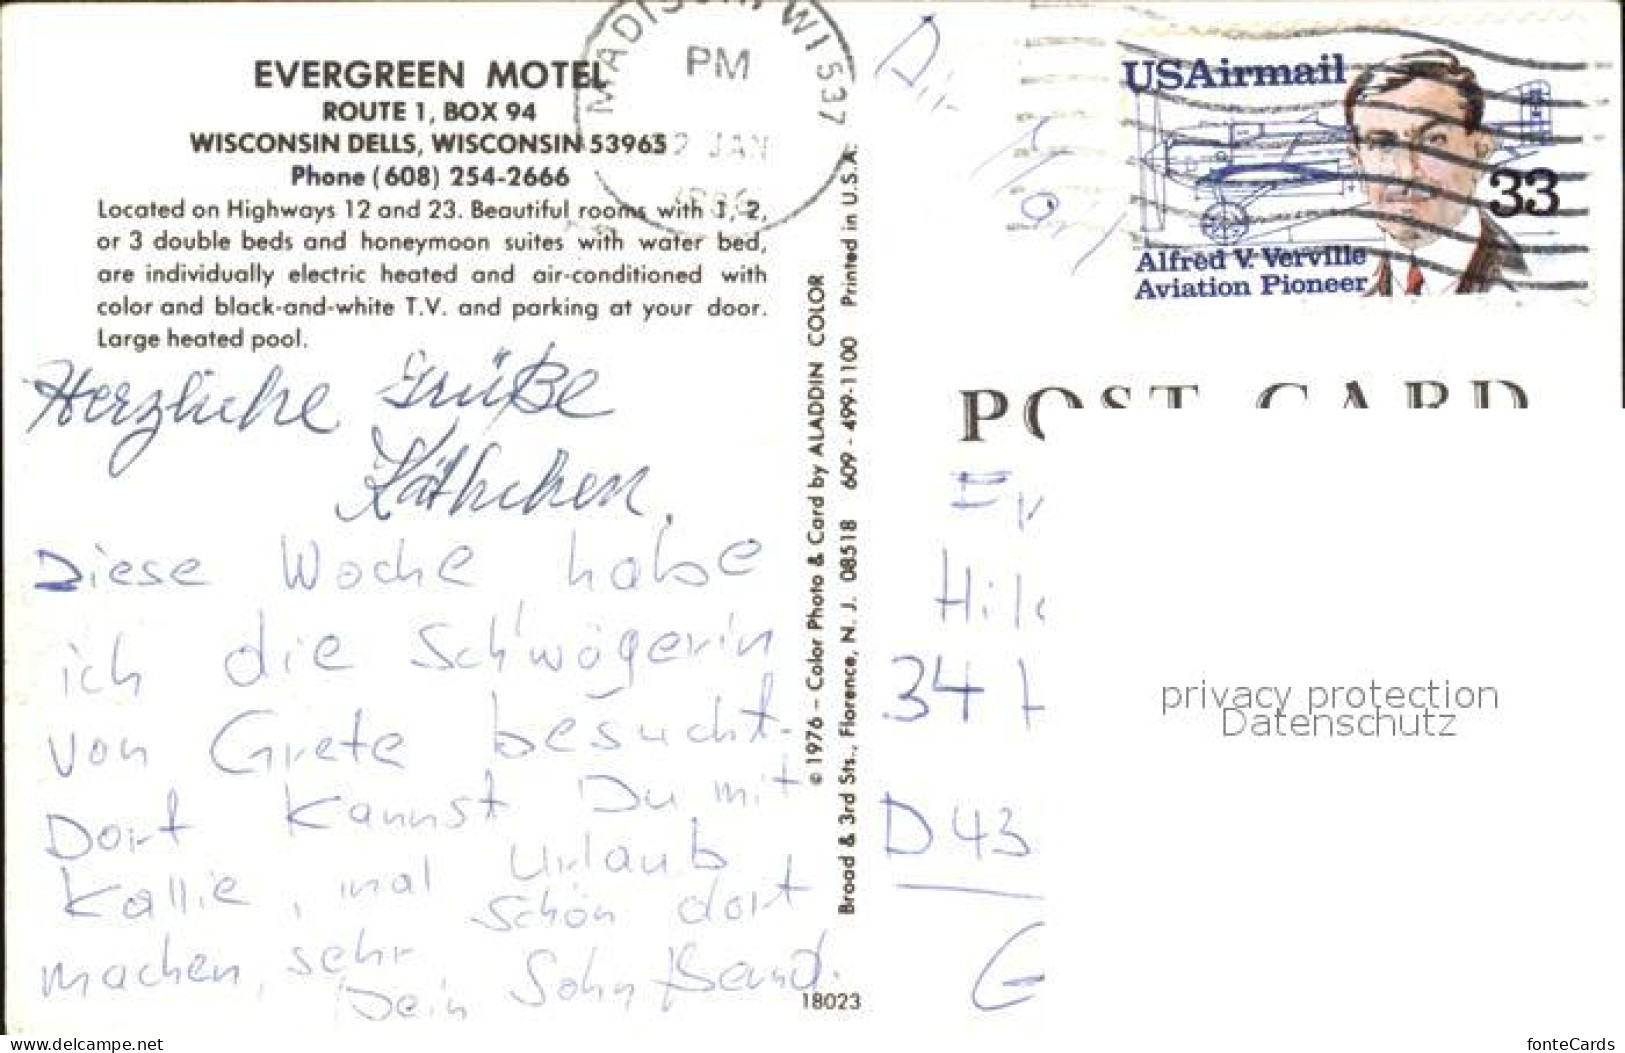 EVERGREEN MOTEL
ROUTE 1, BOX 94
WISCONSIN DELLS, WISCONSIN 53965
Phone (608) 254-2666
Located on Highways 12 and 23. Beautiful rooms with 1, 2,
or 3 double beds and honeymoon suites with water bed,
are individually electric heated and air-conditioned with
color and black-and-white T.V. and parking at your door.
Large heated pool.
Herzliche Grüße
Käthchen.
Diese Woche habe
ich die Schwägerin
von Grete besucht.
Dort kannst Du mit
Kallie, mal Urlaub
machen, sehr schön dort
Dein Sohn Bernd.
18023
© 1976 – Color Photo & Card by ALADDIN COLOR
Broad & 3rd Sts., Florence, N. J. 08518 609 - 499-1100 Printed in U.S.A.
MADISON, WI 537
PM
2 JAN
USAirmail
33
Alfred V. Verville
Aviation Pioneer
POST CARD
34
D 43
privacy protection
Datenschutz
www.delcampe.net
fonteCards